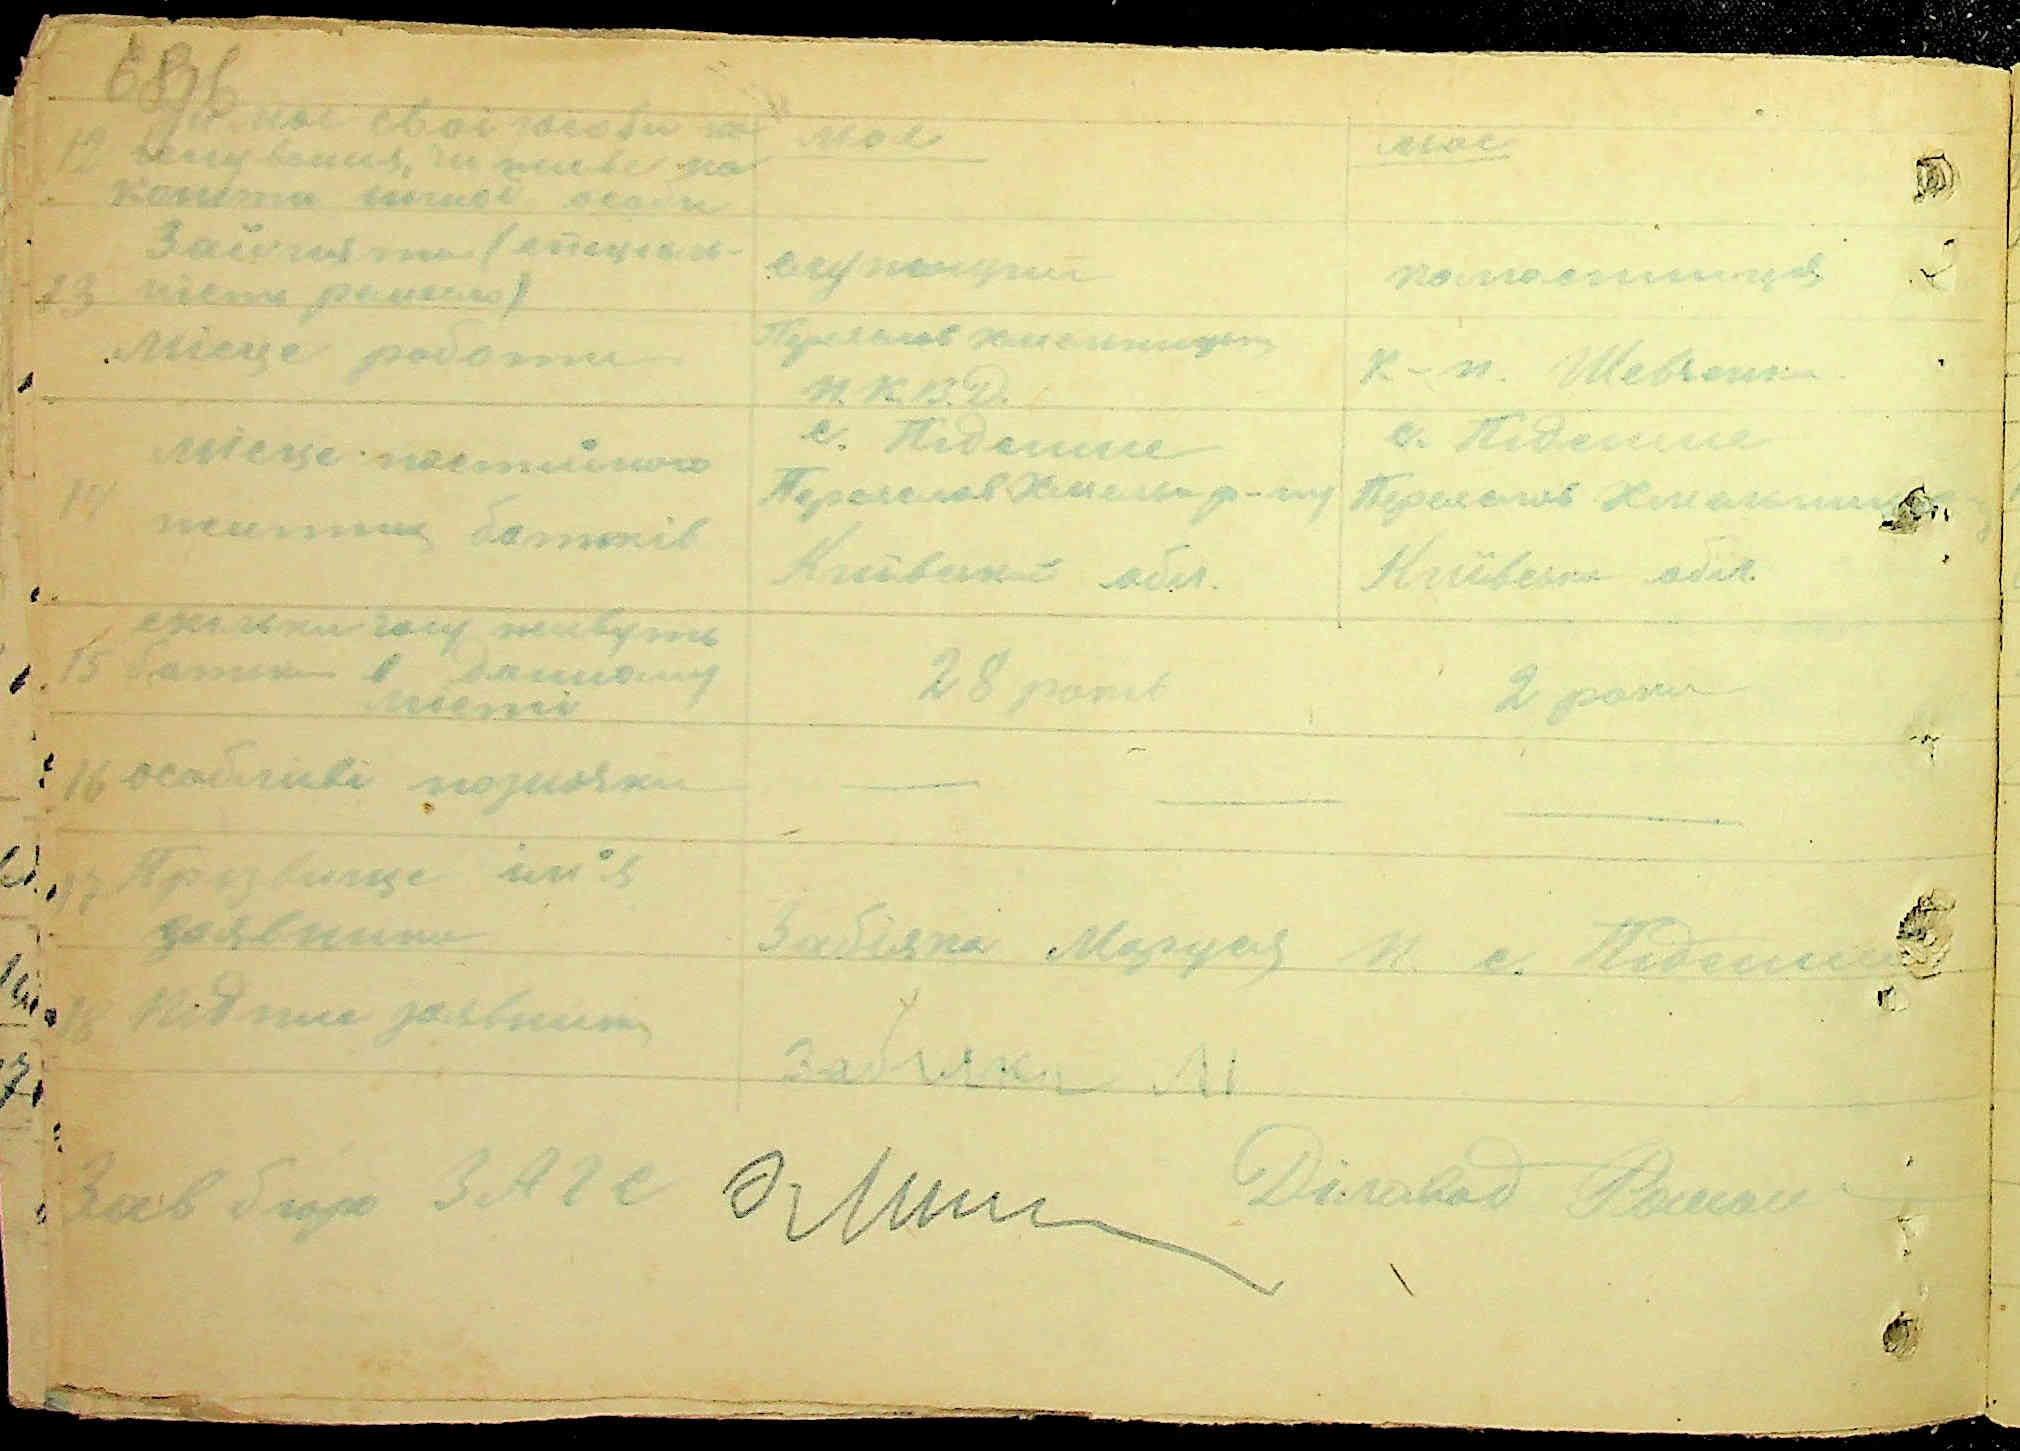 12 Чи має свої засоби на
існування, чи живе на
кошти іншої особи
має
має
13 Заняття (спеціаль-
ність ремесло)
службовий
колгоспниця
Місце роботи
Переяслав Хмельницьк
Н.К.В.Д.
к-п. Шевченка
14 Місце постійного
життя батьків
с. Підсинне
Переяслав Хмельн р-ну
Київській обл.
с. Підсинне
Переяслав Хмельниц
Київська обл.
15 скільки часу живуть
батьки в даному
місті
28 років
2 роки
16 особливі познаки
17 Прізвище ім'я
заявника
Забіяка Маруся с. Підсинне
18 Підпис заявника
Забіяка М
Зав бюро ЗАГС
Діловод Роман